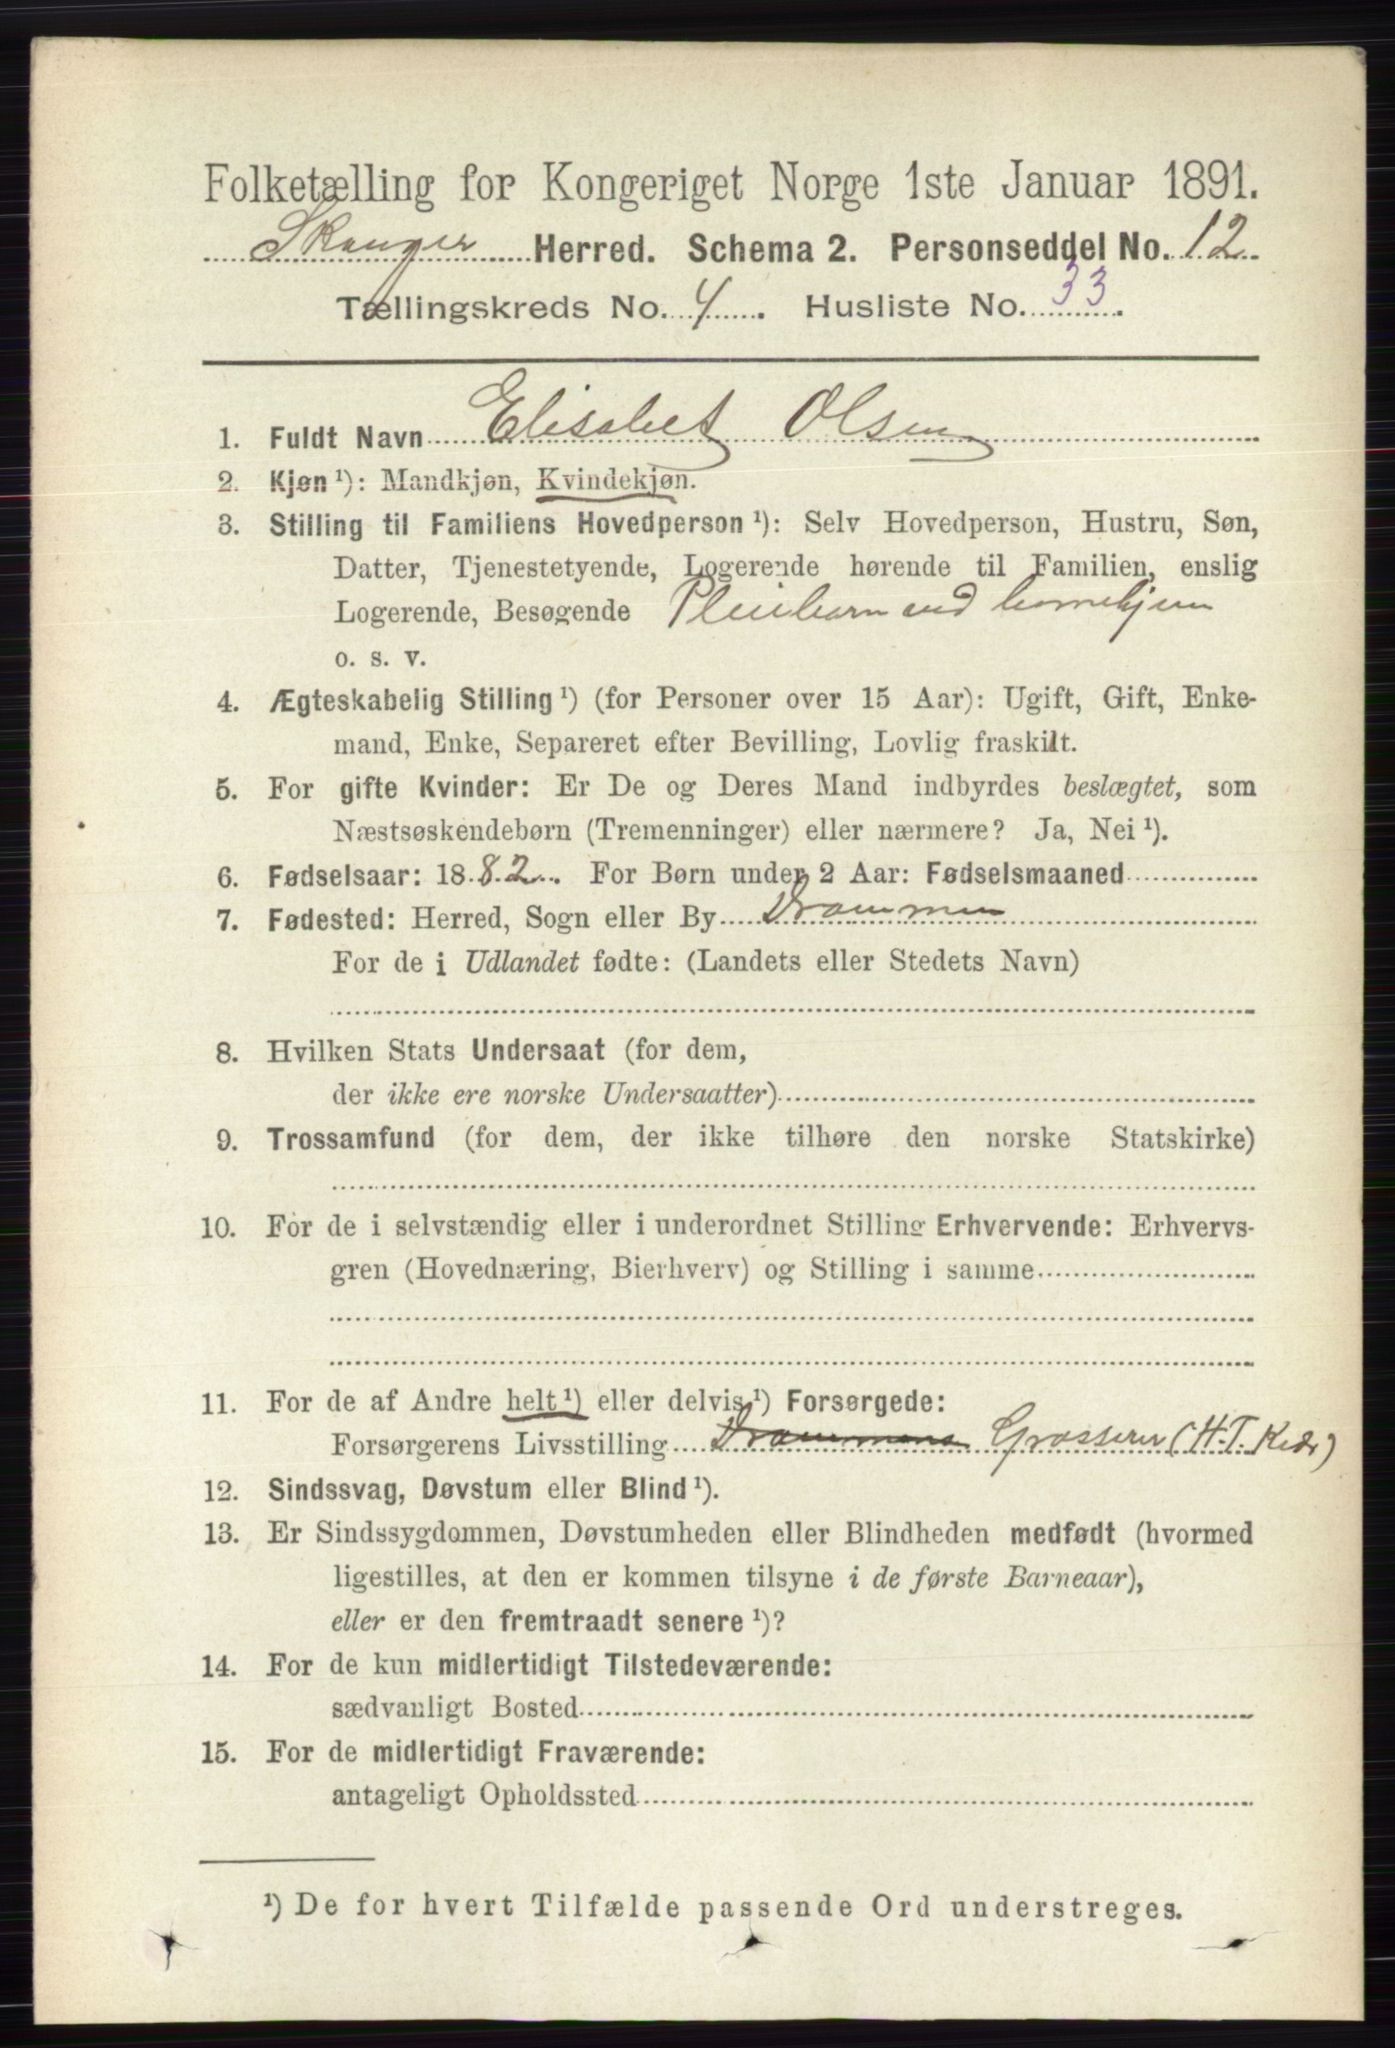 Folketælling for Kongeriget Norge 1ste Januar 1891.
Skouger Herred. Schema 2. Personseddel No. 12
Tællingskreds No. 4. Husliste No. 33.
1. Fuldt Navn Elisabet Olsen
2. Kjøn ¹): Mandkjøn, Kvindekjøn.
3. Stilling til Familiens Hovedperson ¹): Selv Hovedperson, Hustru, Søn,
Datter, Tjenestetyende, Logerende hørende til Familien, enslig
Logerende, Besøgende Pleiebarn ved
o. s. v.
4. Ægteskabelig Stilling ¹) (for Personer over 15 Aar): Ugift, Gift, Enke-
mand, Enke, Separeret efter Bevilling, Lovlig fraskilt.
5. For gifte Kvinder: Er De og Deres Mand indbyrdes beslægtet, som
Næstsøskendebørn (Tremenninger) eller nærmere? Ja, Nei ¹).
6. Fødselsaar: 1882. For Børn under 2 Aar: Fødselsmaaned
7. Fødested: Herred, Sogn eller By Drammen
For de i Udlandet fødte: (Landets eller Stedets Navn)
8. Hvilken Stats Undersaat (for dem,
der ikke ere norske Undersaatter)
9. Trossamfund (for dem, der ikke tilhøre den norske Statskirke)
10. For de i selvstændig eller i underordnet Stilling Erhvervende: Erhvervs-
gren (Hovednæring, Bierhverv) og Stilling i samme
11. For de af Andre helt ¹) eller delvis ¹) Forsørgede:
Forsørgerens Livsstilling Drammens Grosserer (H. T. Kiær)
12. Sindssvag, Døvstum eller Blind ¹).
13. Er Sindssygdommen, Døvstumheden eller Blindheden medfødt (hvormed
ligestilles, at den er kommen tilsyne i de første Barneaar),
eller er den fremtraadt senere ¹)?
14. For de kun midlertidigt Tilstedeværende:
sædvanligt Bosted
15. For de midlertidigt Fraværende:
antageligt Opholdssted
¹) De for hvert Tilfælde passende Ord understreges.